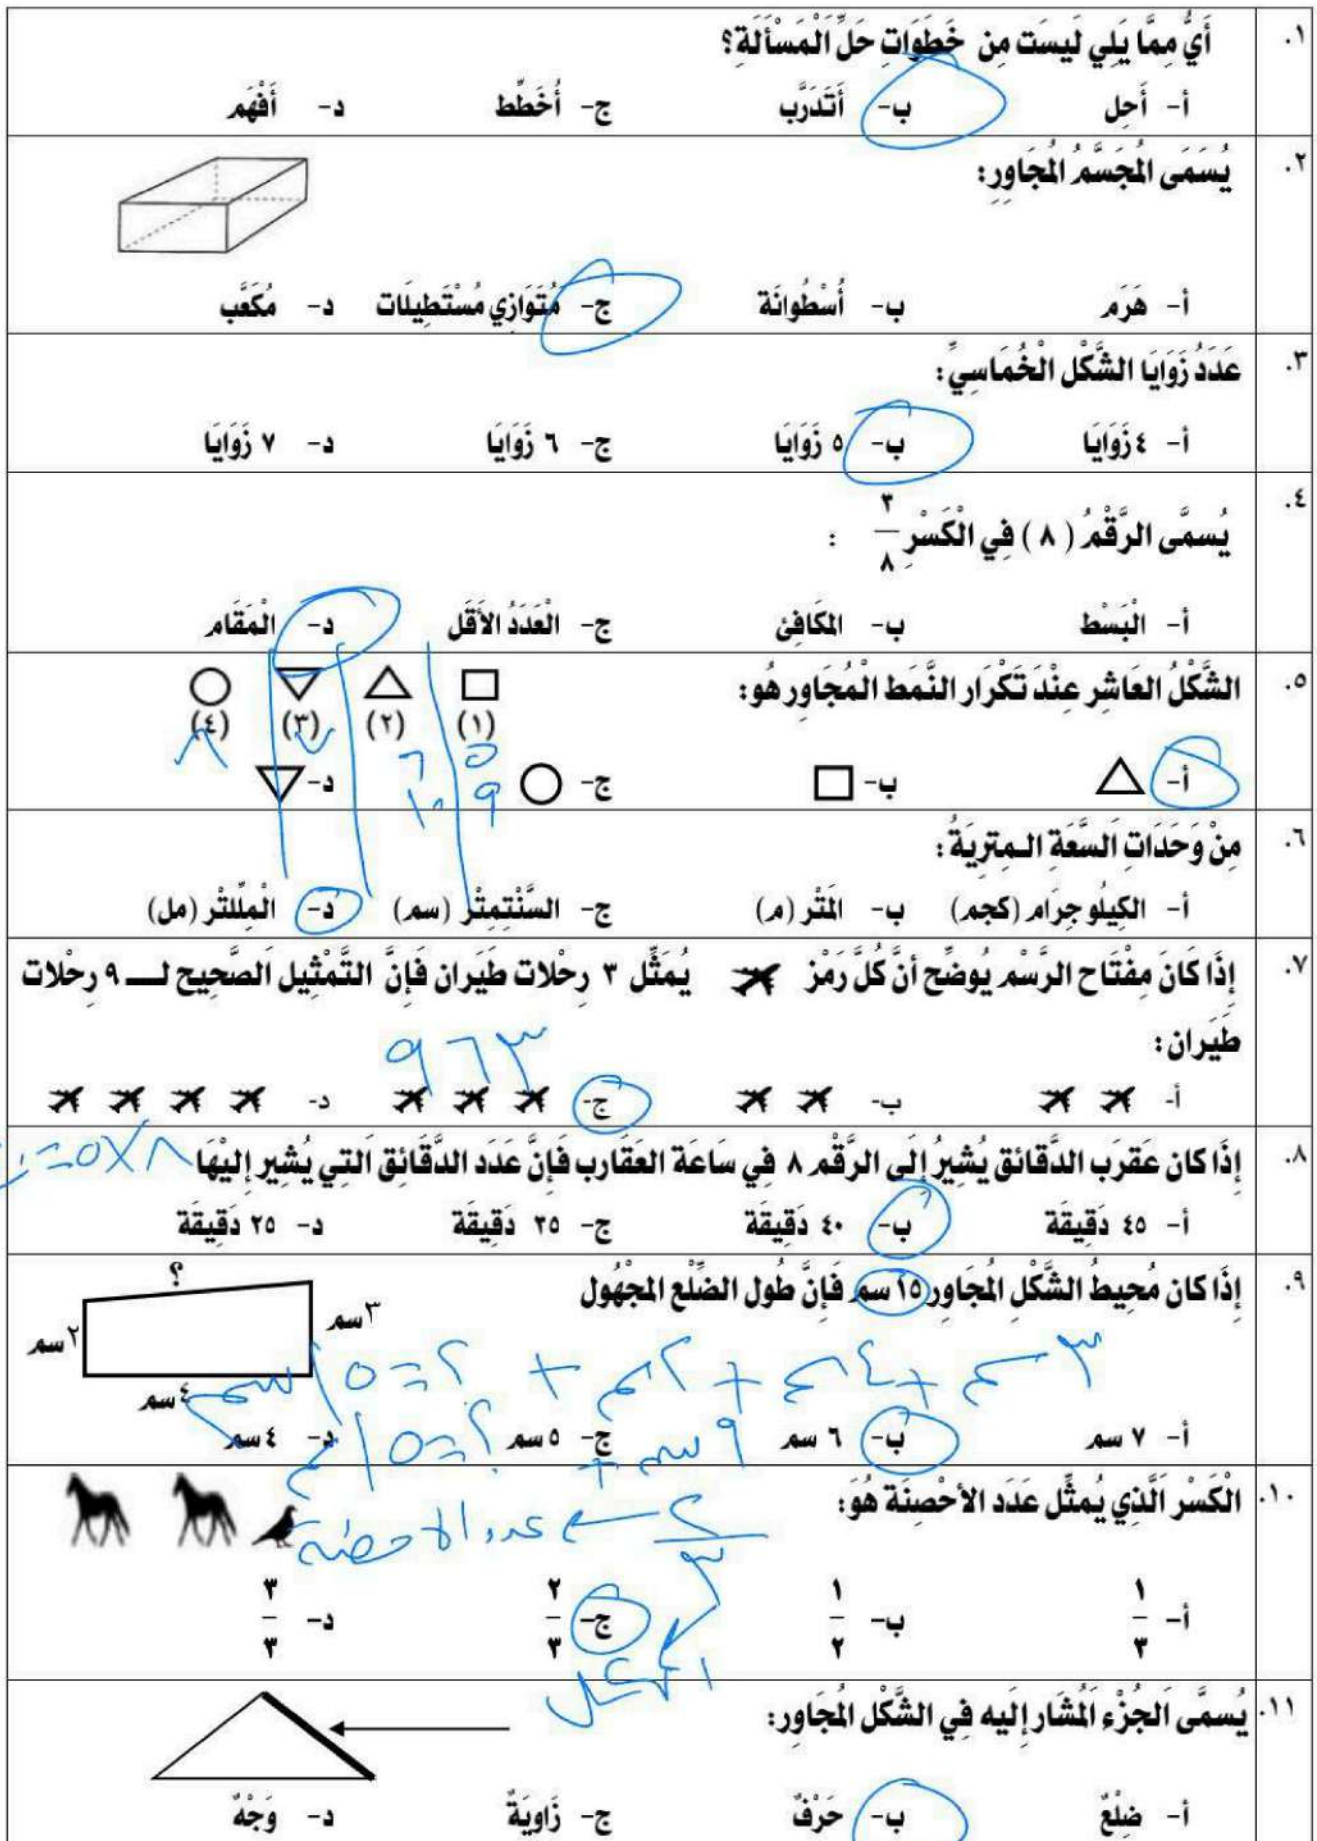 ١. أَيُّ مِمَّا يَلِي لَيسَت مِن خَطَوَاتِ حَلِّ الْمَسْأَلَةِ؟
أ- أَحِل ب- أَتَدَرَّب ج- أُخَطِّط د- أَفْهَم
٢. يُسَمَى الْمُجَسَّمُ الْمُجَاوِرِ:
أ- هَرَم ب- أُسْطُوانَة ج- مُتَوَازِي مُسْتَطِيلَات د- مُكَعَّب
٣. عَدَدُ زَوَايَا الشَّكْل الْخُمَاسِيِّ:
أ- ٤ زَوَايَا ب- ٥ زَوَايَا ج- ٦ زَوَايَا د- ٧ زَوَايَا
٤. يُسمَّى الرَّقْمُ ( ٨ ) فِي الْكَسْرِ ٣/٨ :
أ- الْبَسْط ب- المكَافِئ ج- الْعَدَدُ الأَقَل د- الْمَقَام
٥. الشَّكْلُ العَاشِر عِنْدَ تَكْرَار النَّمَط الْمُجَاوِر هُو:
(١) (٢) (٣) (٤)
٥ ٦ ٧ ٨
٩ ١٠
أ- ب- ج- د-
٦. مِنْ وَحَدَاتِ السَّعَةِ الـمِترِيَةُ:
أ- الكِيلُو جِرَام (كجم) ب- المَتْر (م) ج- السَّنْتِمِتْر (سم) د- الْمِلِّلتْر (مل)
٧. إِذَا كَانَ مِفْتَاح الرَّسْم يُوضِّح أَنَّ كُلَّ رَمْز يُمَثِّل ٣ رِحْلات طَيَران فَإِنَّ التَّمْثِيل الصَّحِيح لـــ ٩ رِحْلات
طَيَران:
٣ ٦ ٩
أ- ب- ج- د-
٨. إِذَا كان عَقرَب الدَّقائق يُشِيرُ إلَى الرَّقْم ٨ فِي سَاعَة العَقَارب فَإِنَّ عَدَد الدَّقَائِق الَتِي يُشِير إِلَيْهَا
أ- ٤٥ دَقِيقَة ب- ٤٠ دَقِيقَة ج- ٣٥ دَقِيقَة د- ٢٥ دَقِيقَة
٩. إِذَا كان مُحِيطُ الشَّكْلِ الْمُجَاوِر ١٥ سم فَإِنَّ طُول الضِّلْع المجْهُول
؟
٣سم
٢سم
٤ سم
٣سم + ٤سم + ٢سم + ؟ = ١٥سم
أ- ٧ سم ب- ٦ سم ج- ٥ سم د- ٤ سم
٩سم + ؟ = ١٥سم
١٠. الْكَسْر الَّذِي يُمثِّل عَدَد الأحْصِنَة هُوَ:
٢/٣ ← عدد الاحصنة
أ- ١/٣ ب- ١/٢ ج- ٢/٣ د- ٣/٣
١١. يُسمَّى الجُزْء المُشَار إِلَيه فِي الشَّكْل المُجَاوِر:
أ- ضِلْعٌ ب- حَرْفٌ ج- زَاوِيَةٌ د- وَجْهٌ